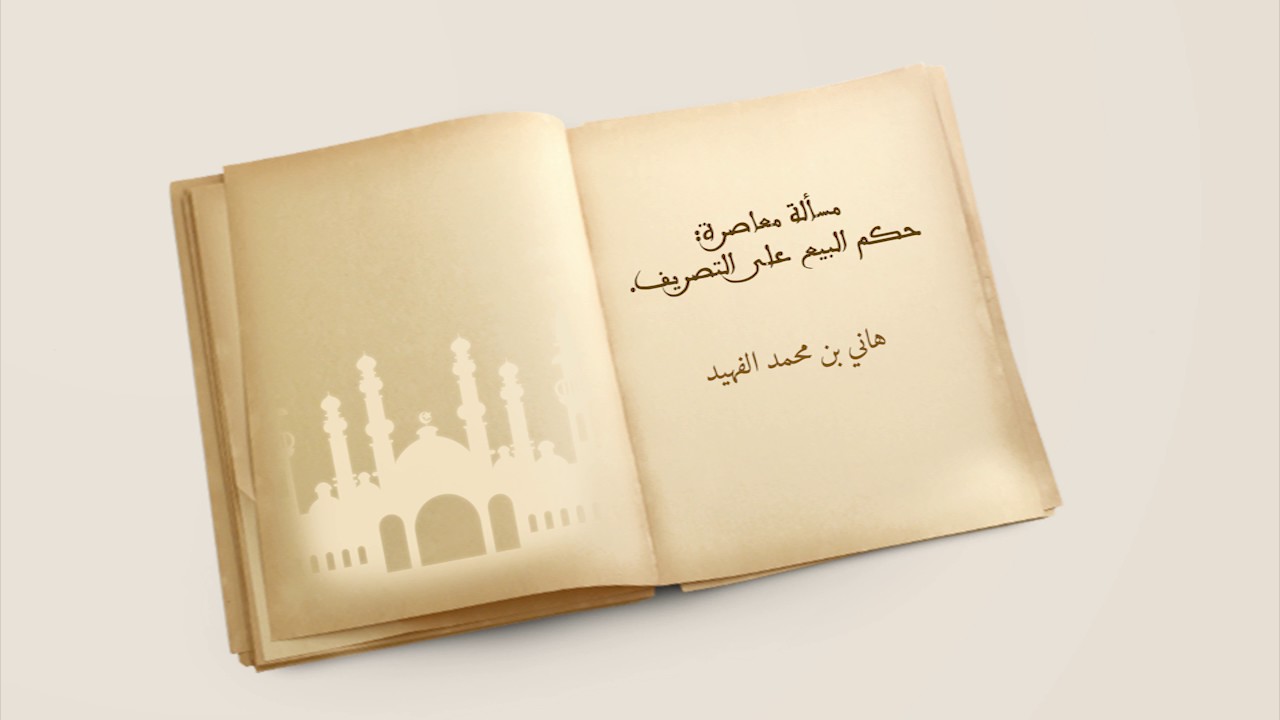 مسألة معاصرة:
حكم البيع على التصريف.
هاني بن محمد الفهيد